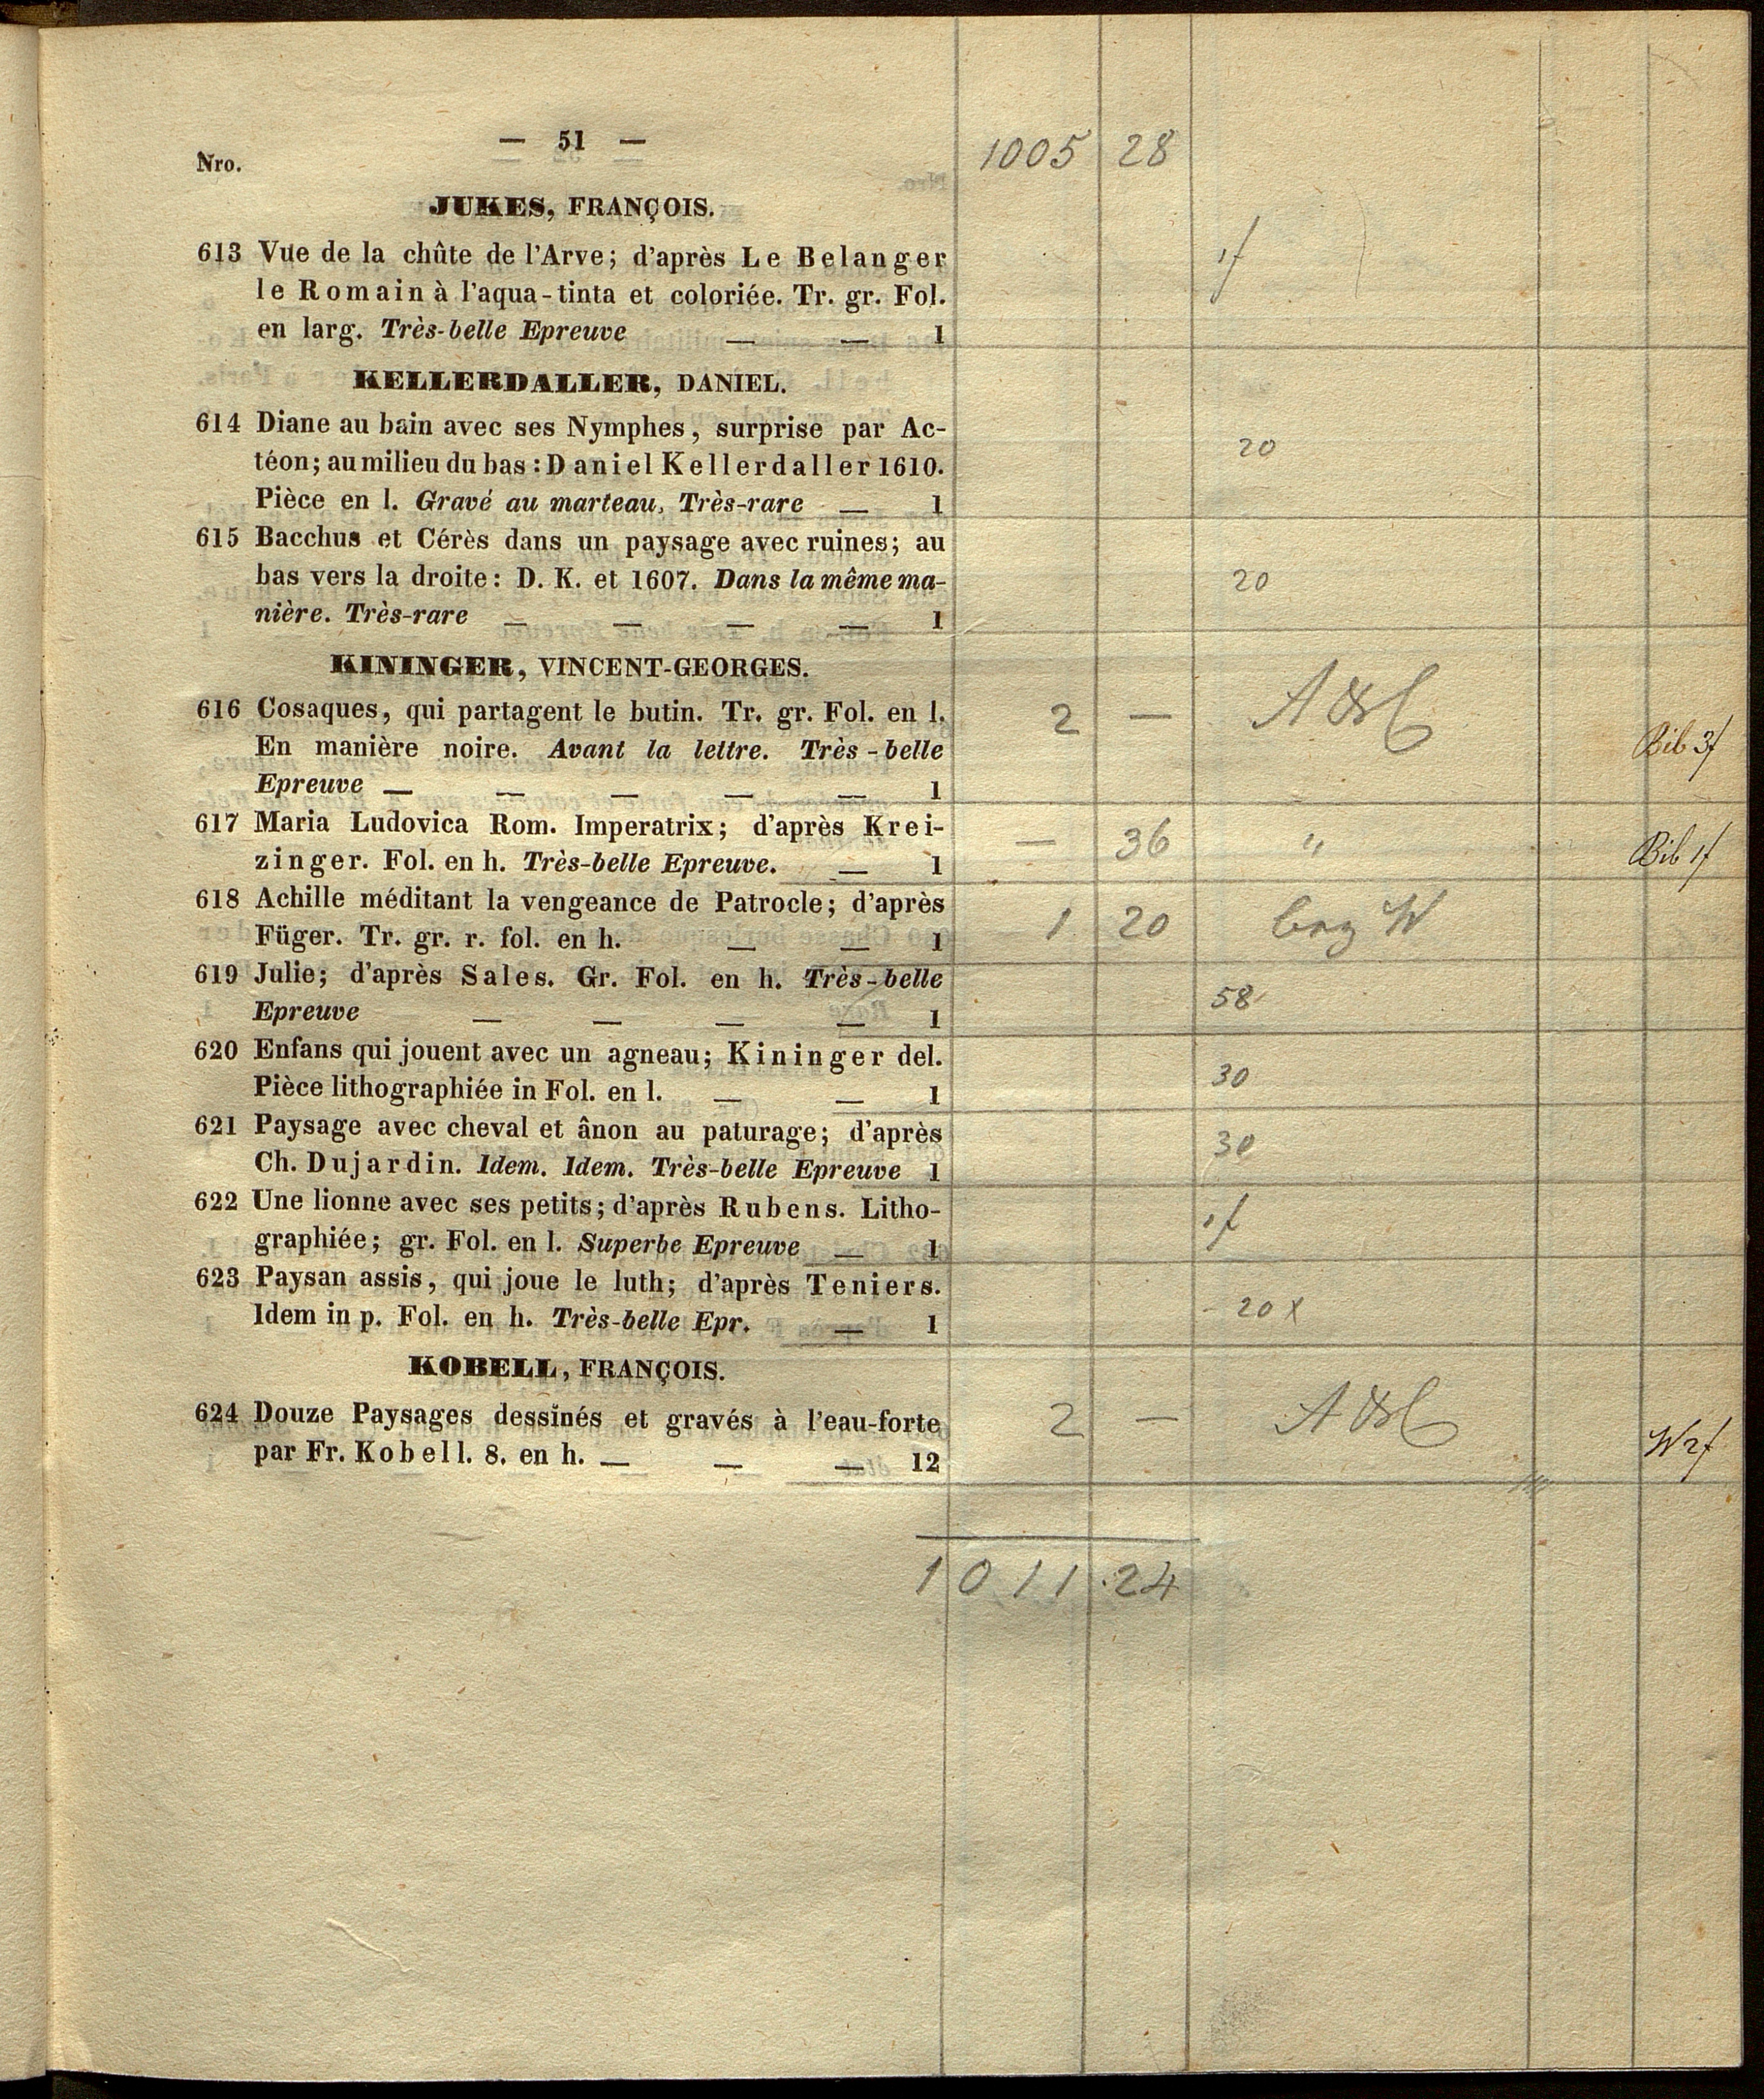 — 51 —
1005 28
Nro.
JUKES, FRANÇOIS.
613 Vue de la chûte de l'Arve; d'après Le Belanger
le Romain à l'aqua-tinta et coloriée. Tr. gr. Fol.
en larg. Très-belle Epreuve — — 1
1f
KELLERDALLER, DANIEL.
614 Diane au bain avec ses Nymphes, surprise par Ac-
téon; au milieu du bas: Daniel Kellerdaller 1610.
Pièce en l. Gravé au marteau, Très-rare — 1
20
615 Bacchus et Cérès dans un paysage avec ruines; au
bas vers la droite: D. K. et 1607. Dans la même ma-
nière. Très-rare — — — — 1
20
KININGER, VINCENT-GEORGES.
616 Cosaques, qui partagent le butin. Tr. gr. Fol. en l.
En manière noire. Avant la lettre. Très-belle
Epreuve — — — — — 1
2 — A & C Bib 3f
617 Maria Ludovica Rom. Imperatrix; d'après Krei-
zinger. Fol. en h. Très-belle Epreuve. — 1
— 36 " Bib 1f
618 Achille méditant la vengeance de Patrocle; d'après
Füger. Tr. gr. r. fol. en h. — — 1
1 20 W
619 Julie; d'après Sales. Gr. Fol. en h. Très-belle
Epreuve — — — — 1
58
620 Enfans qui jouent avec un agneau; Kininger del.
Pièce lithographiée in Fol. en l. — — 1
30
621 Paysage avec cheval et ânon au paturage; d'après
Ch. Dujardin. Idem. Idem. Très-belle Epreuve 1
30
622 Une lionne avec ses petits; d'après Rubens. Litho-
graphiée; gr. Fol. en l. Superbe Epreuve — 1
1f
623 Paysan assis, qui joue le luth; d'après Teniers.
Idem in p. Fol. en h. Très-belle Epr. — 1
- 20 x
KOBELL, FRANÇOIS.
624 Douze Paysages dessinés et gravés à l'eau-forte
par Fr. Kobell. 8. en h. — — — 12
2 — A & C W 2f
1011.24